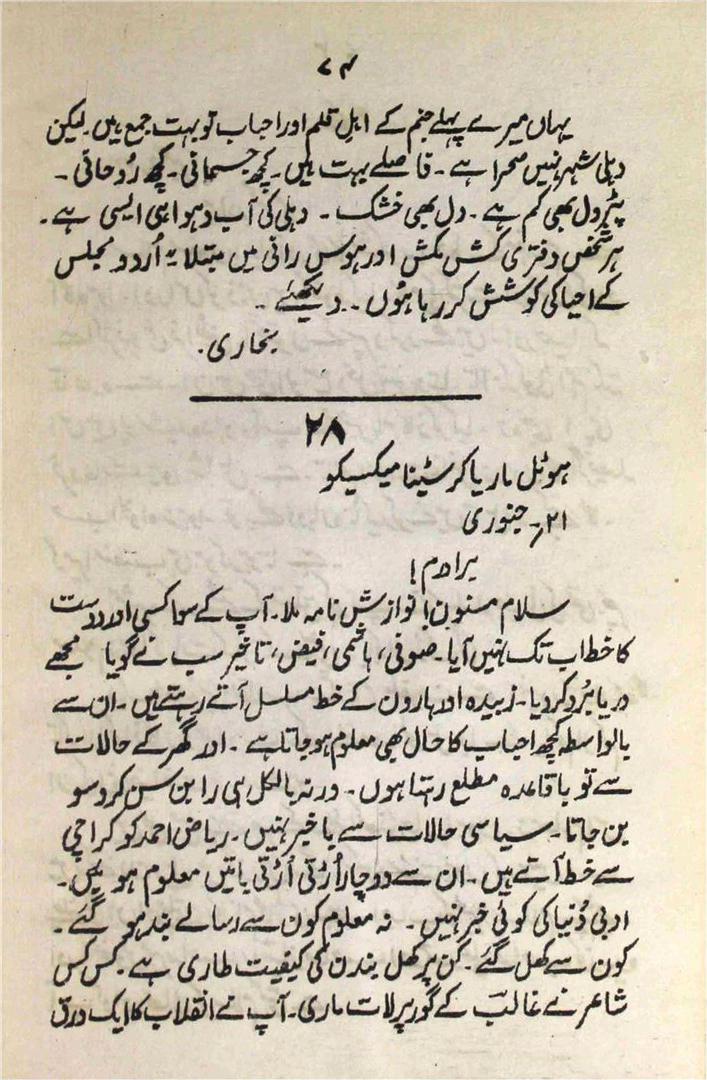 ۷۴
یہاں میرے پہلے جنم کے اہلِ قلم اور احباب تو بہت جمع ہیں۔ لیکن
دہلی شہر نہیں صحرا ہے۔ فاصلے بہت ہیں۔ کچھ جسمانی۔ کچھ رُوحانی۔
پٹرول بھی کم ہے۔ دل بھی خشک۔ دہلی کی آب و ہوا ہی ایسی ہے۔
ہر شخص دفتری کش مکش اور ہوس رانی میں مبتلا۔ اُردو مجلس
کے احیا کی کوشش کر رہا ہُوں۔ دیکھئے۔
بخاری۔
۲۸
ہوٹل ماریا کرسٹینا میکسیکو
۲۱؍ جنوری
برادرم!
سلام مسنون! نوازش نامہ ملا۔ آپ کے سوا کسی اور دوست
کا خط اب تک نہیں آیا۔ صوفی، ہاشمی، فیض، تاثیر سب نے گویا مجھے
دریا بُرد کر دیا۔ زبیدہ اور ہارون کے خط مسلسل آتے رہتے ہیں۔ ان سے
بالواسطہ کچھ احباب کا حال بھی معلوم ہو جاتا ہے۔ اور گھر کے حالات
سے تو باقاعدہ مطلع رہتا ہوں۔ ورنہ بالکل ہی رابن سن کروسو
بن جاتا۔ سیاسی حالات سے باخبر نہیں۔ ریاض احمد کو کراچی
سے خط آتے ہیں۔ ان سے دو چار اُڑتی اُڑتی باتیں معلوم ہوئیں۔
ادبی دُنیا کی کوئی خبر نہیں۔ نہ معلوم کون سے رسالے بند ہو گئے۔
کون سے کھل گئے۔ کن پر کھل بندن کی کیفیت طاری ہے۔ کس کس
شاعر نے غالبؔ کے گور پر لات ماری۔ آپ نے انقلاب کا ایک ورق